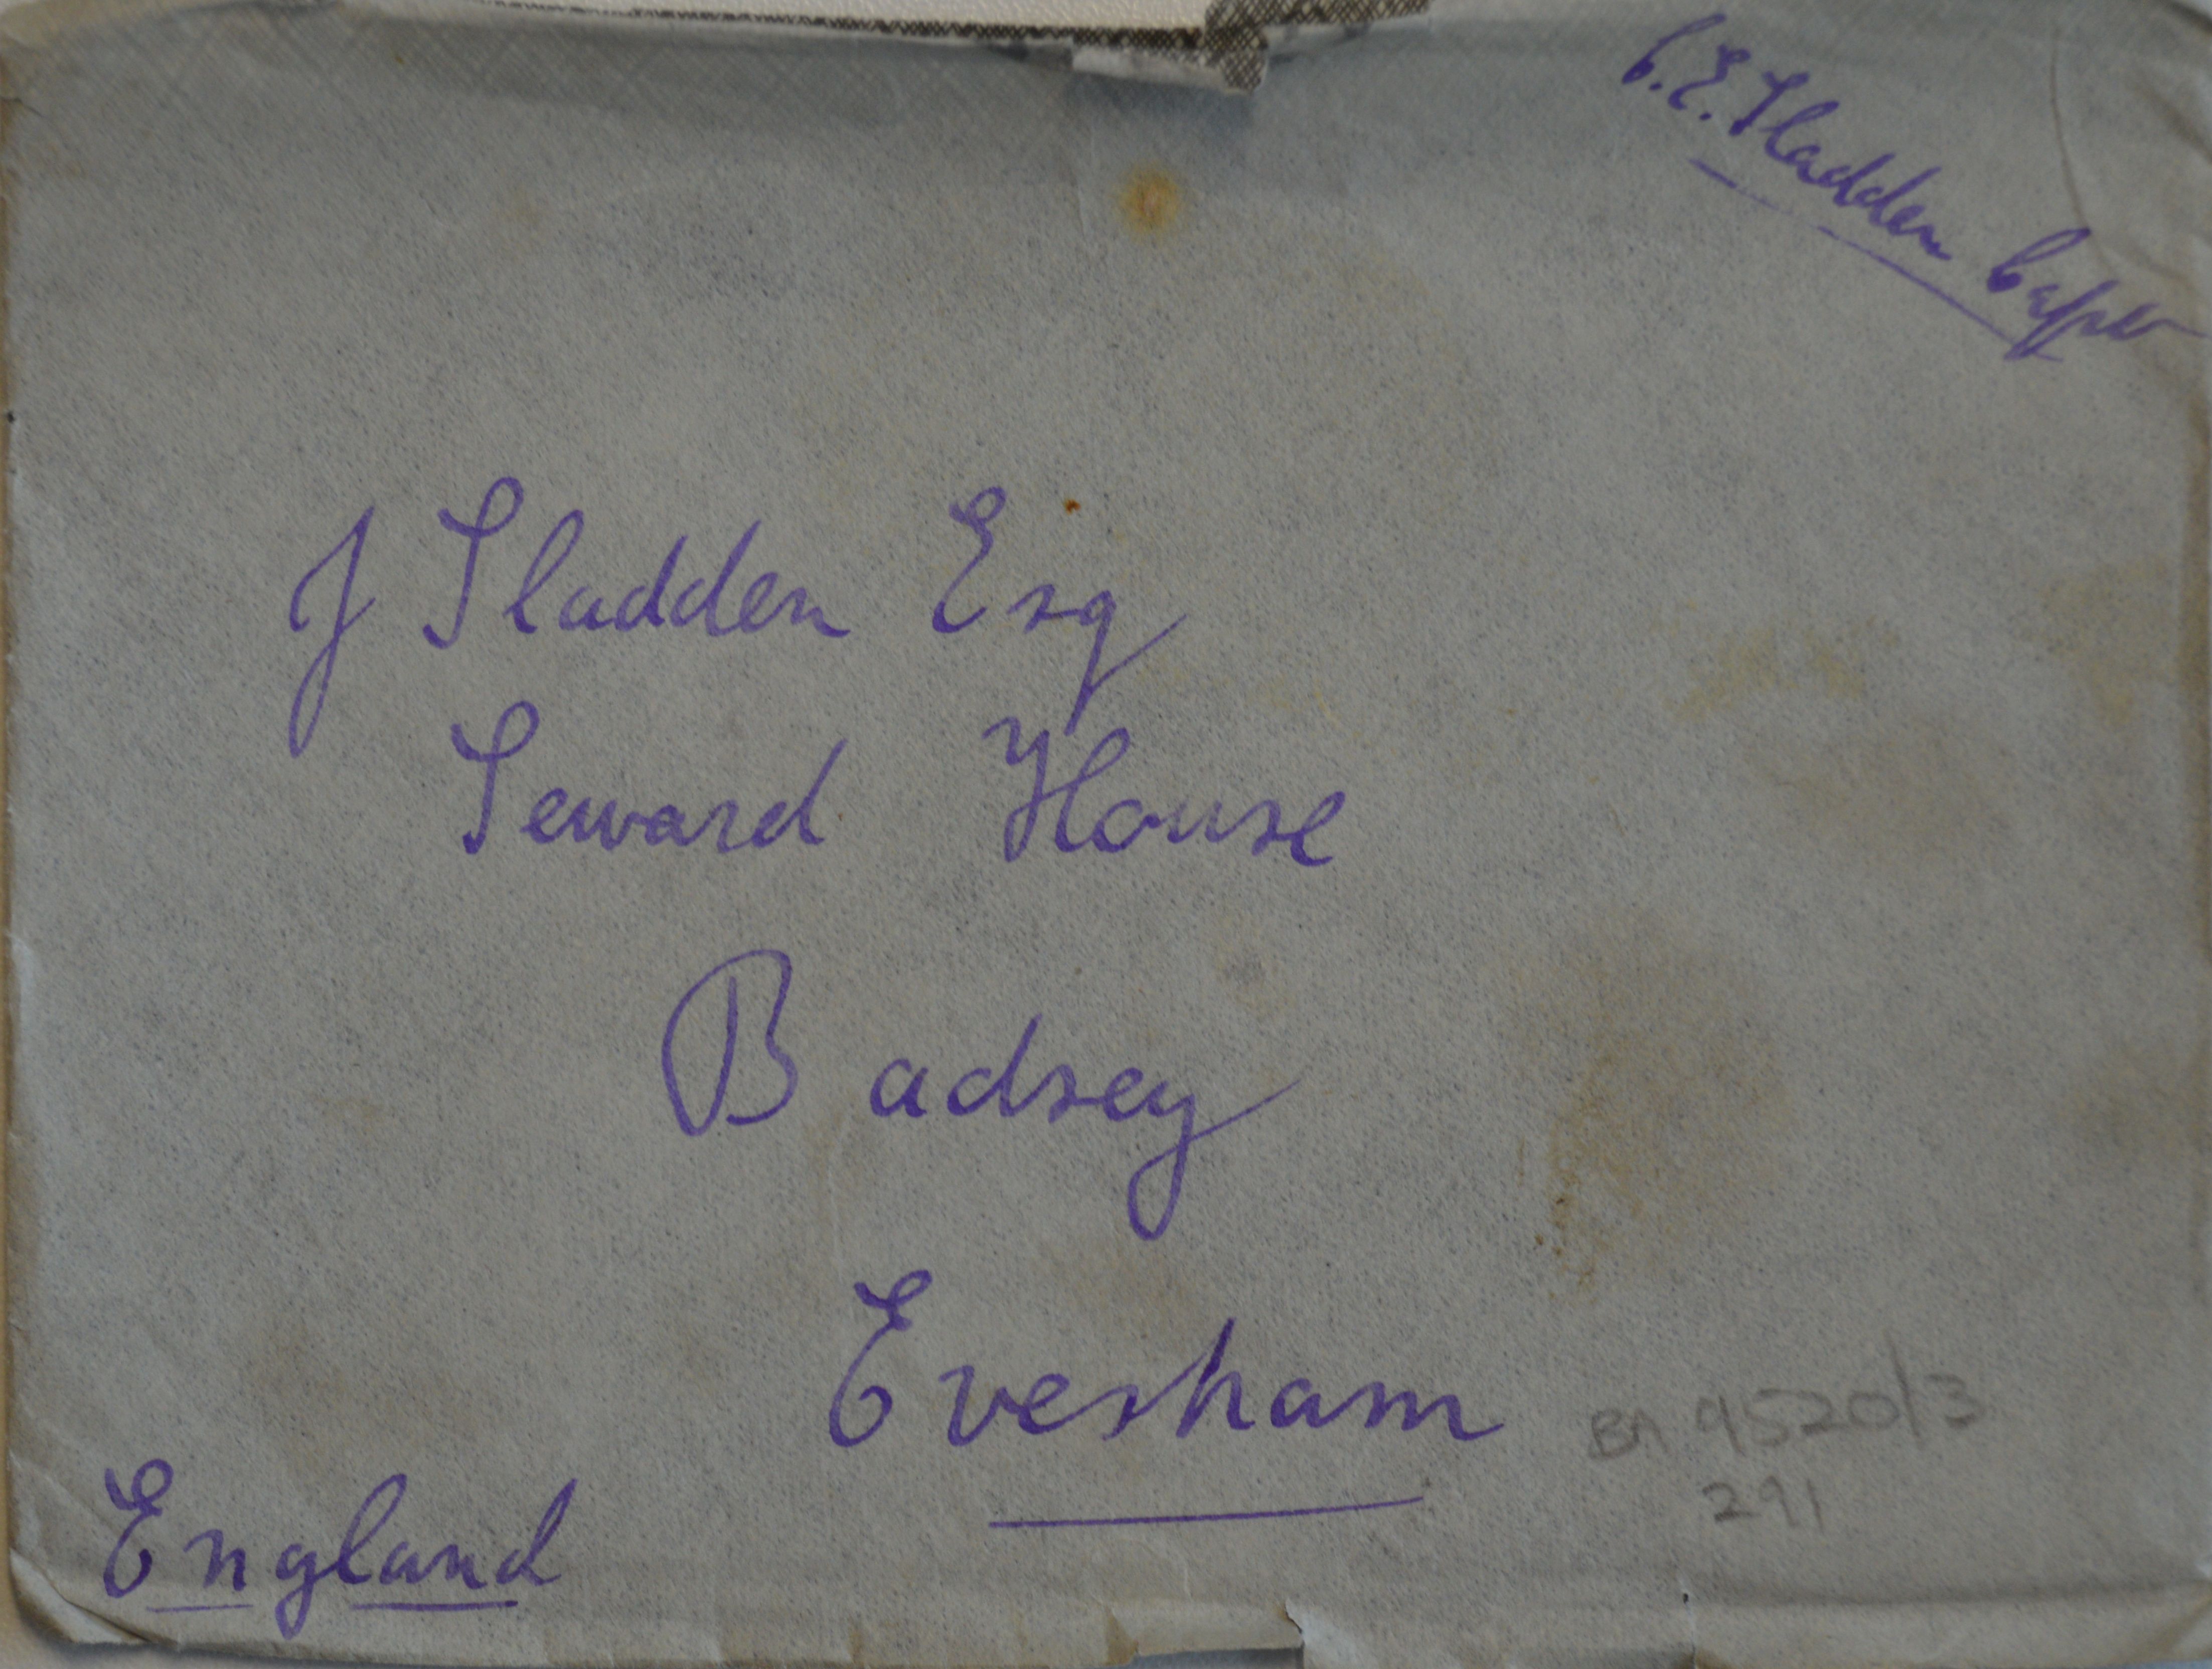 C. E. Sladden Capt
J Sladden Esq
Seward House
Badsey
Evesham
England
BA 9520/3
291